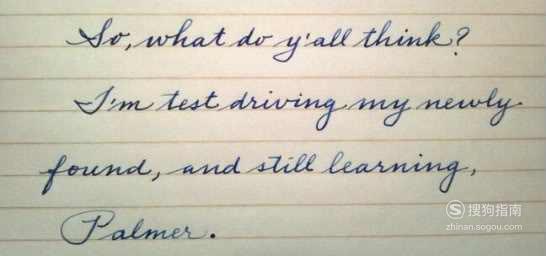 So, what do y'all think?
I'm test driving my newly
found, and still learning,
Palmer.
搜狗指南
zhinan.sogou.com